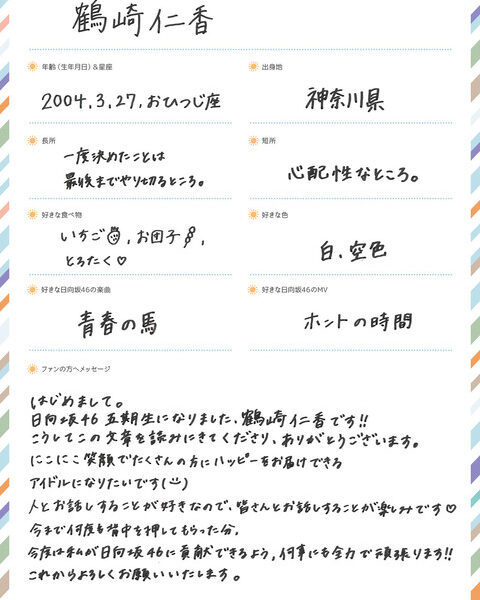 鶴崎仁香
年齢（生年月日）&星座
2004.3.27,おひつじ座
出身地
神奈川県
長所
一度決めたことは
最後までやり切るところ。
短所
心配性なところ。
好きな食べ物
いちご,お団子,
とろたく♡
好きな色
白、空色
好きな日向坂46の楽曲
青春の馬
好きな日向坂46のMV
ホントの時間
ファンの方へメッセージ
はじめまして。
日向坂46 五期生になりました、鶴崎仁香です!!
こうしてこの文章を読みにきてくださり、ありがとうございます。
にこにこ笑顔でたくさんの方にハッピーをお届けできる
アイドルになりたいです(ᵕᴗᵕ)
人とお話しすることが好きなので、皆さんとお話しすることが楽しみです♡
今まで何度も背中を押してもらった分、
今度は私が日向坂46に貢献できるよう、何事にも全力で頑張ります!!
これからよろしくお願いいたします。